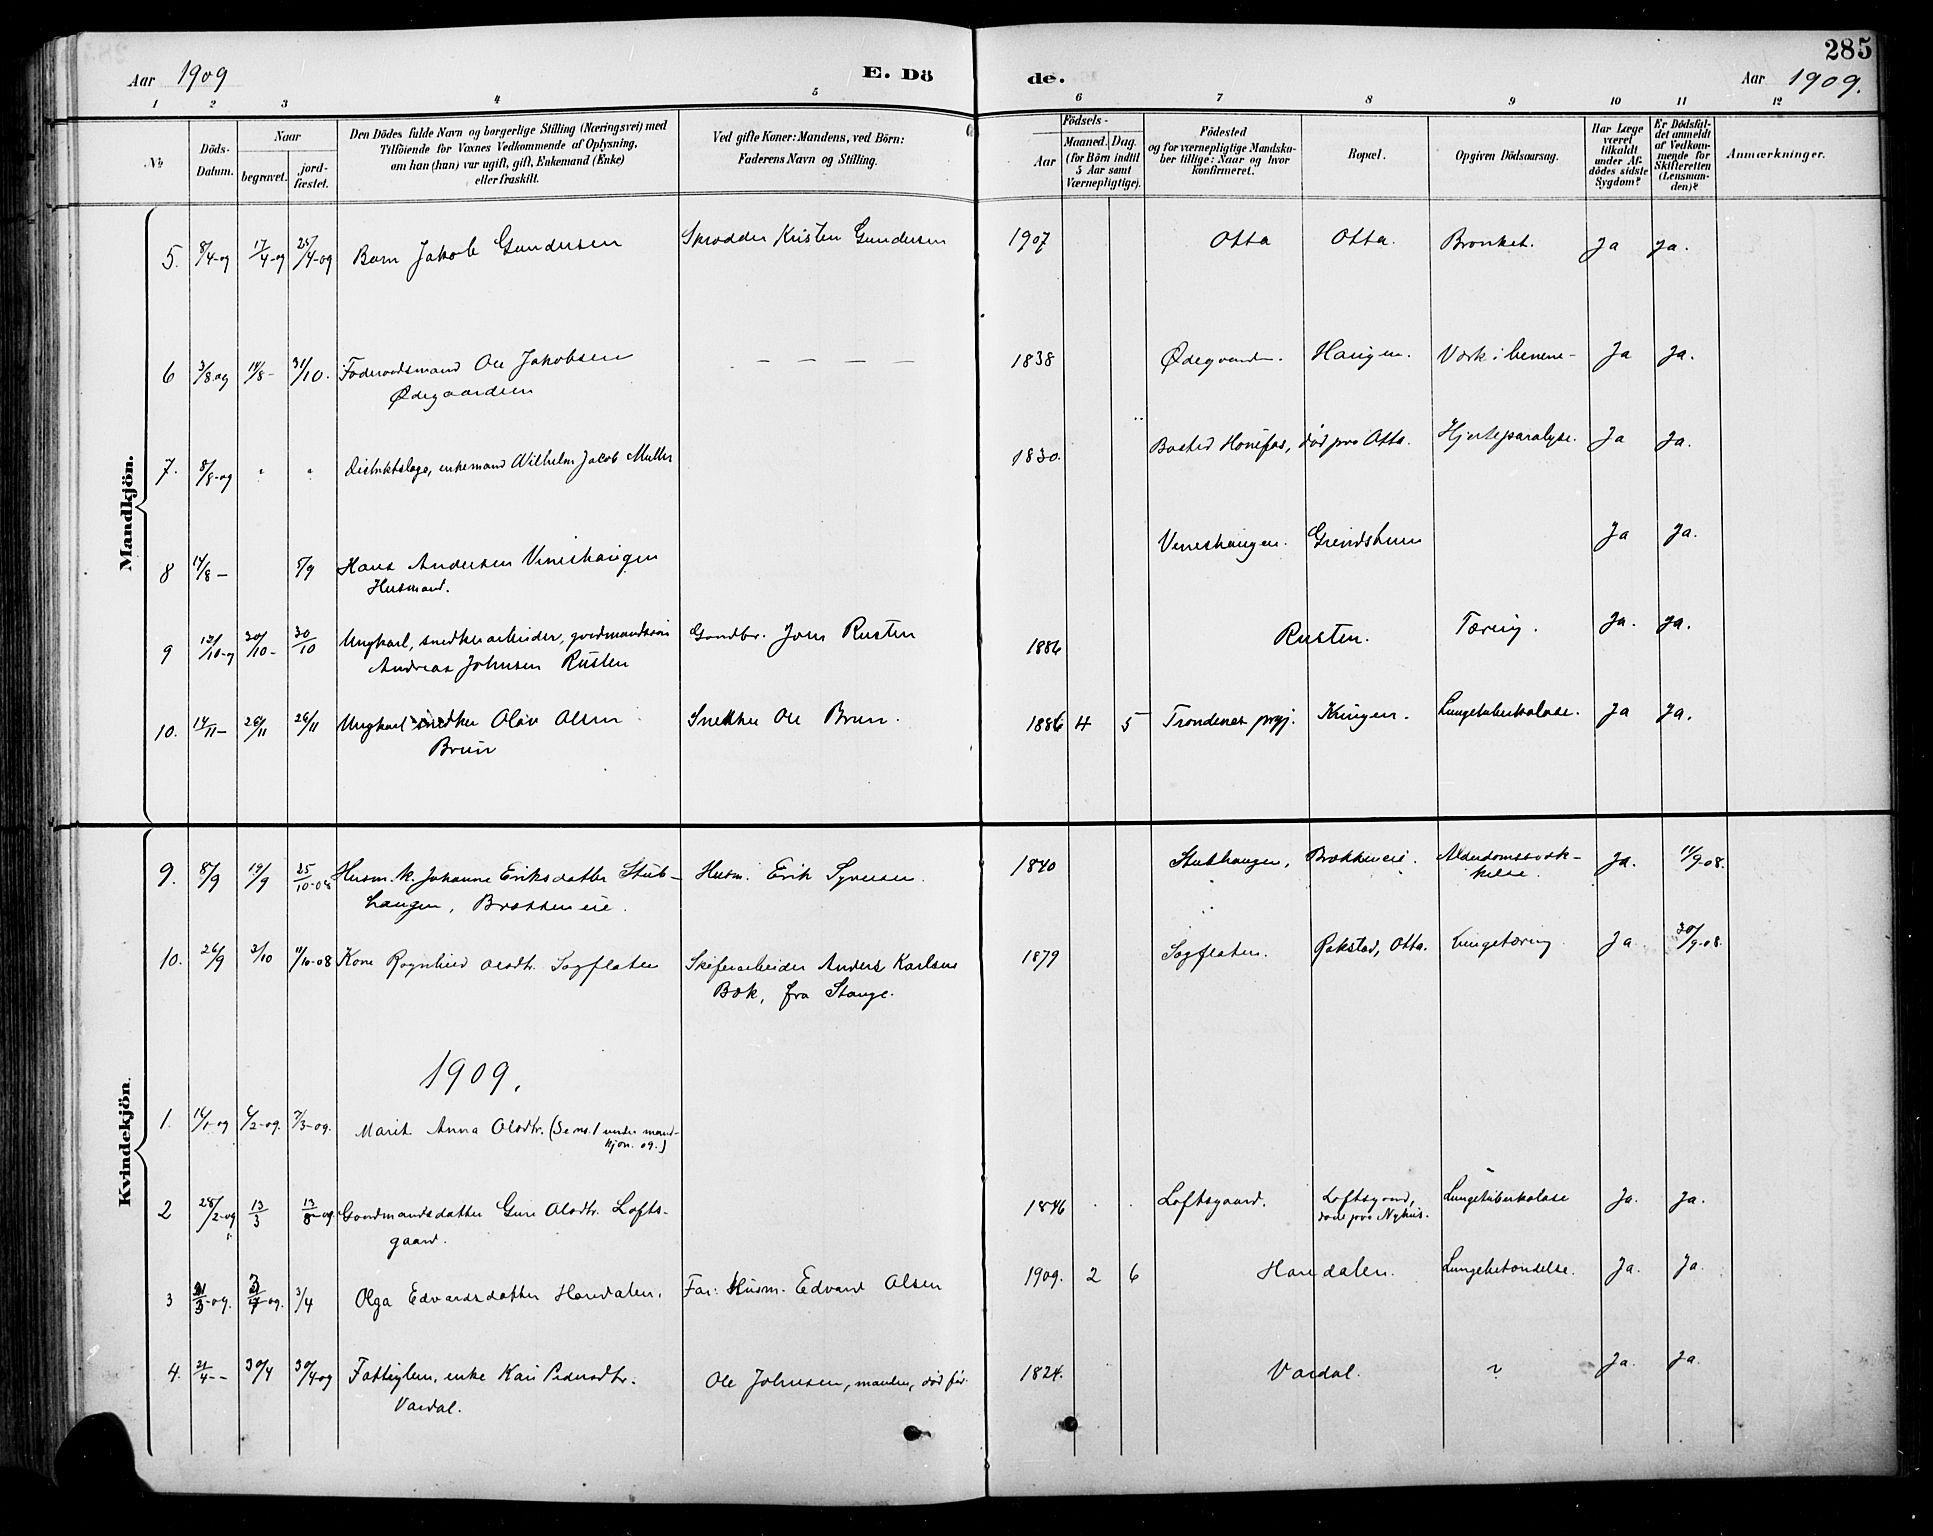 285
Aar 1909
E. Dö
de.
Aar 1909.
1 2 3 4 5 6 7 8 9 10 11 12
№
Döds-
Datum.
Naar
begravet.
jord-
fæstet.
Den Dödes fulde Navn og borgerlige Stilling (Næringsvei) med
Tilföiende for Voxnes Vedkommende af Oplysning,
om han (hun) var ugift, gift, Enkemand (Enke)
eller fraskilt.
Ved gifte Koner: Mandens, ved Börn:
Faderens Navn og Stilling.
Födsels-
Aar
Maaned. Dag.
(for Börn indtil
5 Aar samt
Værnepligtige).
Födested
og for værnepligtige Mandska-
ber tillige: Naar og hvor
konfirmeret.
Bopæl.
Opgiven Dödsaarsag.
Har Læge
været
tilkaldt
under Af-
dödes sidste
Sygdom?
Er Dödsfal-
det anmeldt
af Vedkom-
mende for
Skifteretten
(Lensman-
den)?
Anmærkninger.
Mandkjön.
5. 8/4-09 17/4-09 25/4-09 Barn Jakob Gundersen Skrædder Kristen Gundersen 1907 Otta Otta. Bronkit. Ja Ja.
6 3/8-09 14/8- 31/10. Føderaadsmand Ole Jakobsen — — — — 1838 Ødegaarden. Haugen. Værk i benene- Ja Ja.
Ødegaarden
7. 8/8-09 " " Distriktslæge, enkemand Wilhelm Jacob Muller 1830. Bosted Hønefos, død paa Otta. Hjerteparalyse. Ja Ja.
8 14/8- 5/9 Hans Andersen Vineshaugen Vineshaugen. Grindstuen Ja Ja.
Husmand.
9 12/10-09 20/10- 30/10 Ungkarl, snedkerarbeider, gaardmandssøn Gaardbr. John Rusten 1886 Rusten. Tæring. Ja. Ja.
Andreas Johnsen Rusten
10. 14/11- 26/11 26/11 Ungkarl snedker Olav Olsen Snekker Ole Brun. 1886 4 5 Trondenes prgj. Kringen. Lungetuberkulose. Ja Ja.
Brun
Kvindekjön.
9. 8/9 19/9 25/10-08 Husm. k. Johanne Eriksdatter Stub- Husm. Erik Syversen. 1840 Stubhaugen, Brækkeneie. Alderdomssvæk- Ja. 11/9-08.
haugen, Brækkeneie. kelse.
10. 26/9 3/10 11/10-08 Kone Rognhild Olsdtr. Sagflaten Skiferarbeider Anders Karlsen 1879 Sagflaten. Rakstad, Otta. Lungetæring. Ja 30/9-08.
Bæk, fra Stange.
1909.
1. 14/1-09 6/2-09. 7/3-09. Marit Anna Olsdtr. (Se no. 1 under mand-
kjøn. 09.)
2 28/2-09 13/3 13/3-09 Gaardmandsdatter Guri Olsdtr. Lofts- 1846 . . Loftsgaard. Loftsgaard, Lungetuberkulose Ja. Ja.
gaard. døde paa Nyhus.
3 21/3-09. 3/4-09. 3/4 Olga Edvardsdatter Horedalen. Far: Husm. Edvard Olsen 1909. 2 6 Horedalen. Lungebetændelse. Ja. Ja.
4. 21/4-- 30/4 30/4-09 Fattiglem, enke Kari Pedersdtr. Ole Johnsen, manden, død før. 1824. Vardal. ? Ja. Ja.
Vardal.